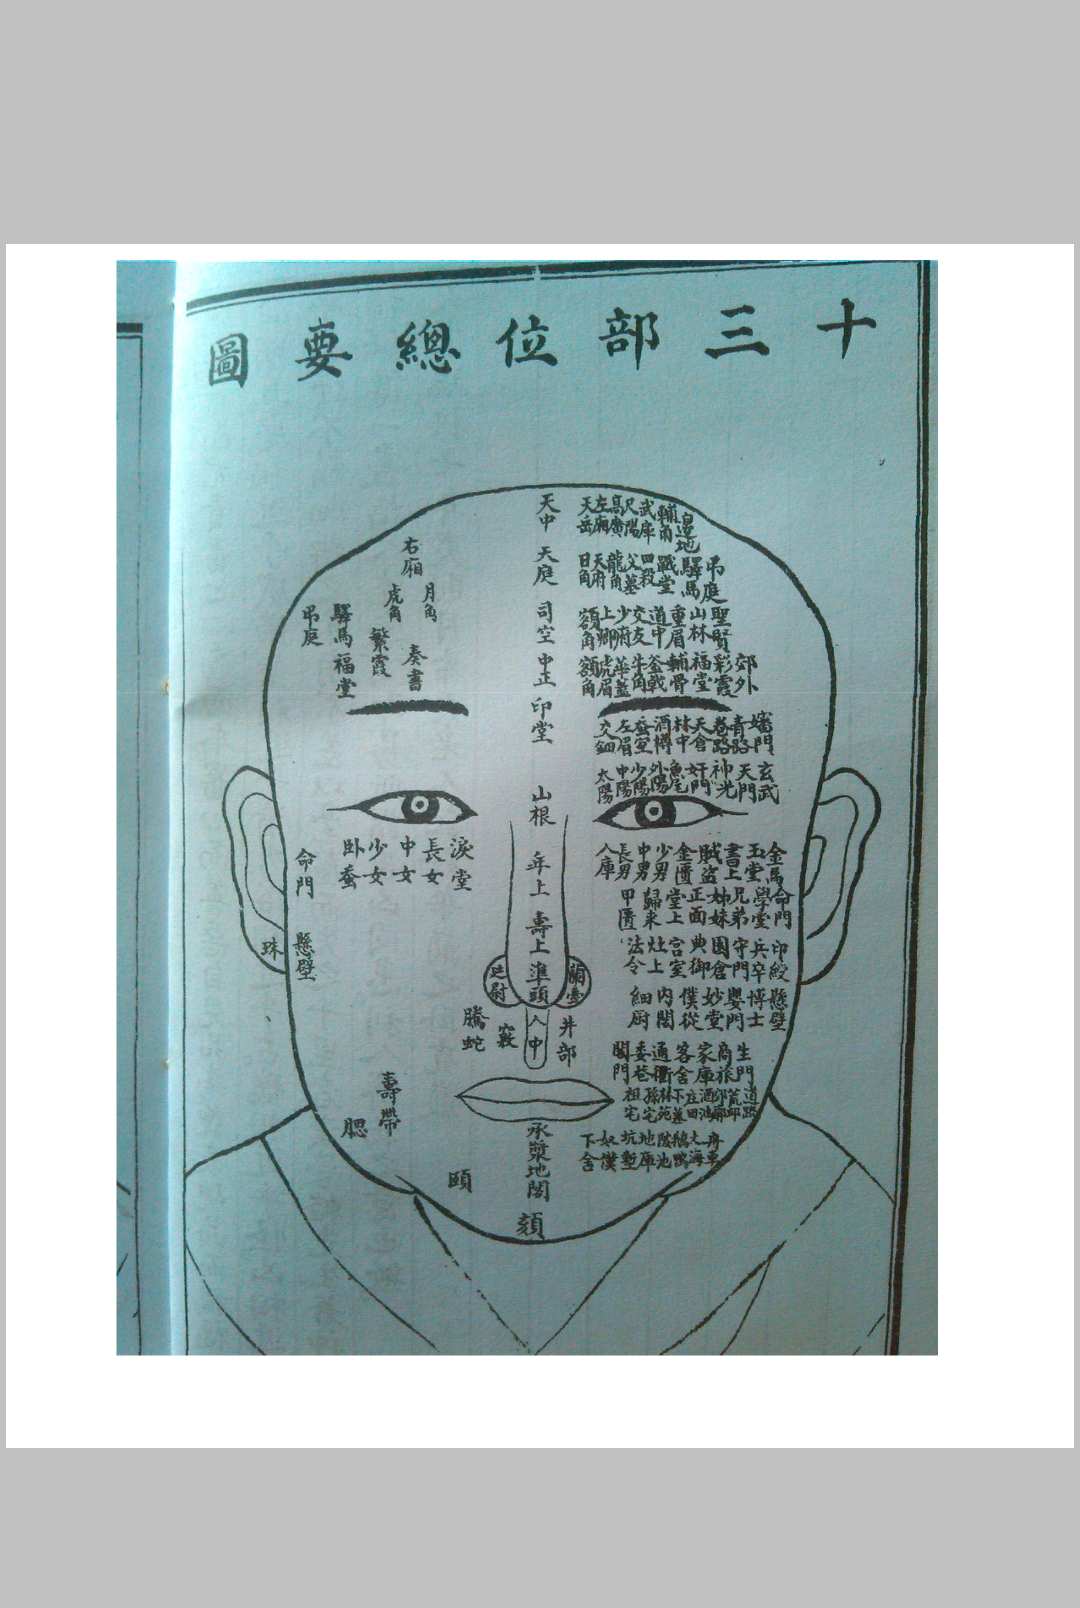 十三部位總要圖
天中
天岳
左廂
高廣
尺陽
武庫
輔角
邊地
天庭
日角
天府
龍角
父墓
四殺
戰堂
驛馬
吊庭
司空
額角
上卿
少府
交友
道中
重眉
山林
聖賢
中正
額角
虎眉
華蓋
牛角
釜戟
輔骨
福堂
彩霞
郊外
印堂
交鈿
左眉
蚕室
酒樽
林中
天倉
巷路
青路
嬪門
山根
太陽
中陽
少陽
外陽
魚尾
奸門
神光
天門
玄武
年上
入庫
長男
中男
少男
金匱
賊盜
書上
玉堂
金馬
壽上
甲匱
歸來
堂上
正面
姊妹
兄弟
學堂
命門
準頭
蘭臺
廷尉
法令
灶上
宮室
典御
園倉
守門
兵卒
印綬
細厨
內閣
僕從
妙堂
嬰門
博士
懸壁
人中
井部
竅
騰蛇
閣門
委巷
通衢
客舍
家庫
商旅
生門
祖宅
孫宅
林苑
下墓
庄田
酒池
郊廓
荒邱
道路
承漿
地閣
下舍
奴僕
坑塹
地庫
陂池
鵝鴨
大海
舟車
頦
右廂
月角
虎角
驛馬
吊庭
繁霞
奏書
福堂
淚堂
長女
中女
少女
卧蚕
命門
懸壁
珠
壽帶
腮
頤